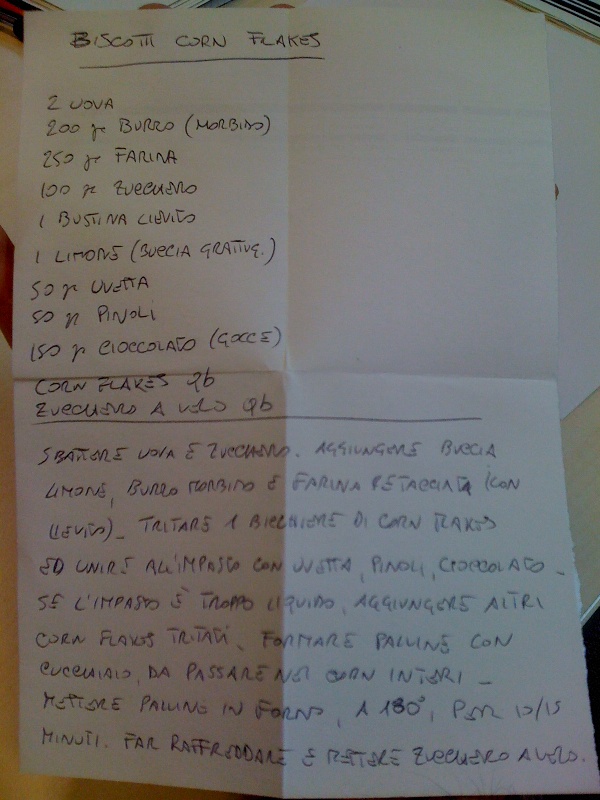 BISCOTTI CORN FLAKES
2 UOVA
200 gr BURRO (MORBIDO)
250 gr FARINA
100 gr ZUCCHERO
1 BUSTINA LIEVITO
1 LIMONE (BUCCIA GRATTUG.)
50 gr UVETTA
50 gr PINOLI
150 gr CIOCCOLATO (GOCCE)
CORN FLAKES Qb
ZUCCHERO A VELO Qb
SBATTERE UOVA E ZUCCHERO. AGGIUNGERE BUCCIA
LIMONE, BURRO MORBIDO E FARINA SETACCIATA (CON
LIEVITO)_ TRITARE 1 BICCHIERE DI CORN FLAKES
ED UNIRE ALL'IMPASTO CON UVETTA, PINOLI, CIOCCOLATO_
SE L'IMPASTO È TROPPO LIQUIDO, AGGIUNGERE ALTRI
CORN FLAKES TRITATI. FORMARE PALLINE CON
CUCCHIAIO, DA PASSARE NEI CORN INTERI_
METTERE PALLINE IN FORNO, A 180°, PER 10/15
MINUTI. FAR RAFFREDDARE E METTERE ZUCCHERO A VELO.